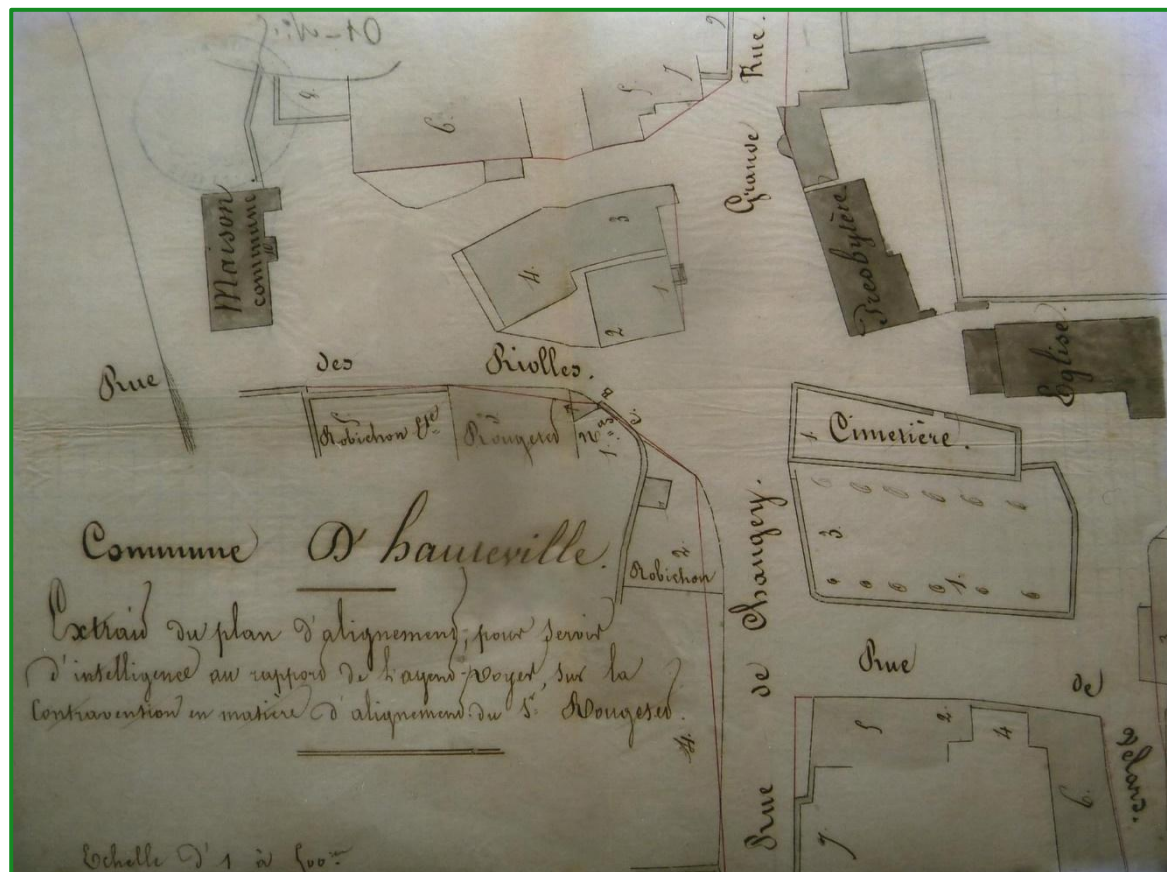 6.
6.
5
7
9
Grande Rue.
Maison
commune.
Presbytère
3
4.
1
2
Eglise.
Rue des Riolles.
Robichon
Rougetet
Cimetière.
1.
3.
1.
2
Robichon
Commune D'hauteville.
Extrait du plan d'alignement, pour servir
d'intelligence au rapport de L'agent-voyer, sur la
Contravention en matière d'alignement du Sr. Rougetet.
4.
Rue de Changey.
Rue de
5
2.
4
6.
7
Echelle d'1 à 500me